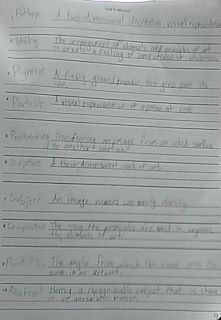 Pattern A two dimensional decorative visual repetition
Unity The arrangement of elements and principles of art
to create a feeling of completeness or wholeness.
Pigment A finely ground powder that give paint its
color.
Portrait A visual representation of a person at rest.
Printmaking Transferring an image from an inked surface
to another surface.
Sculpture A three dimensional work of art.
Subject An image viewers can easily identify.
Composition The way the principles are used to organize
the elements of art.
Point of View The angle from which the viewer sees the
in an artwork.
Abstract Having a recognizable subject that is shown
in an unrealistic manner.